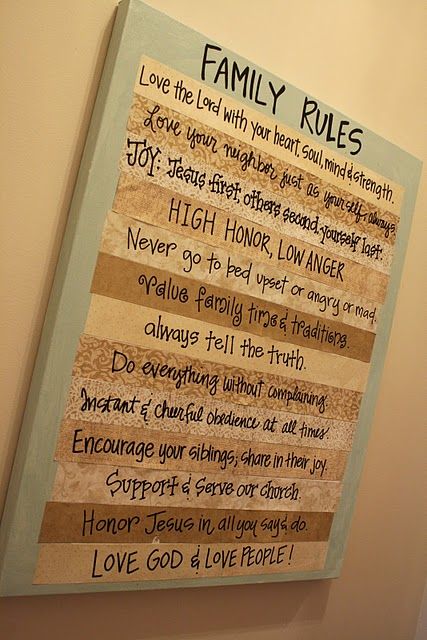 FAMILY RULES
Love the Lord with your heart, soul, mind & strength.
Love your neighbor just as yourself, always.
JOY: Jesus first, others second, yourself last.
HIGH HONOR, LOW ANGER
Never go to bed upset or angry or mad.
value family time & traditions.
always tell the truth.
Do everything without complaining.
Instant & cheerful obedience at all times.
Encourage your siblings; share in their joy.
Support & Serve our church.
Honor Jesus in all you say & do.
LOVE GOD & LOVE PEOPLE!